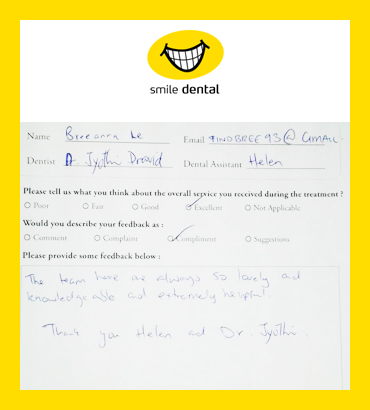 smile dental
Name Breeanna Le Email
Dentist Dr Jyothi Dravid Dental Assistant Helen
Please tell us what you think about the overall service you received during the treatment ?
Poor Fair Good Excellent Not Applicable
Would you describe your feedback as :
Comment Complaint Compliment Suggestions
Please provide some feedback below :
The team here are always so lovely and
knowledgeable and extremely helpful
Thank you Helen and Dr. Jyothi.